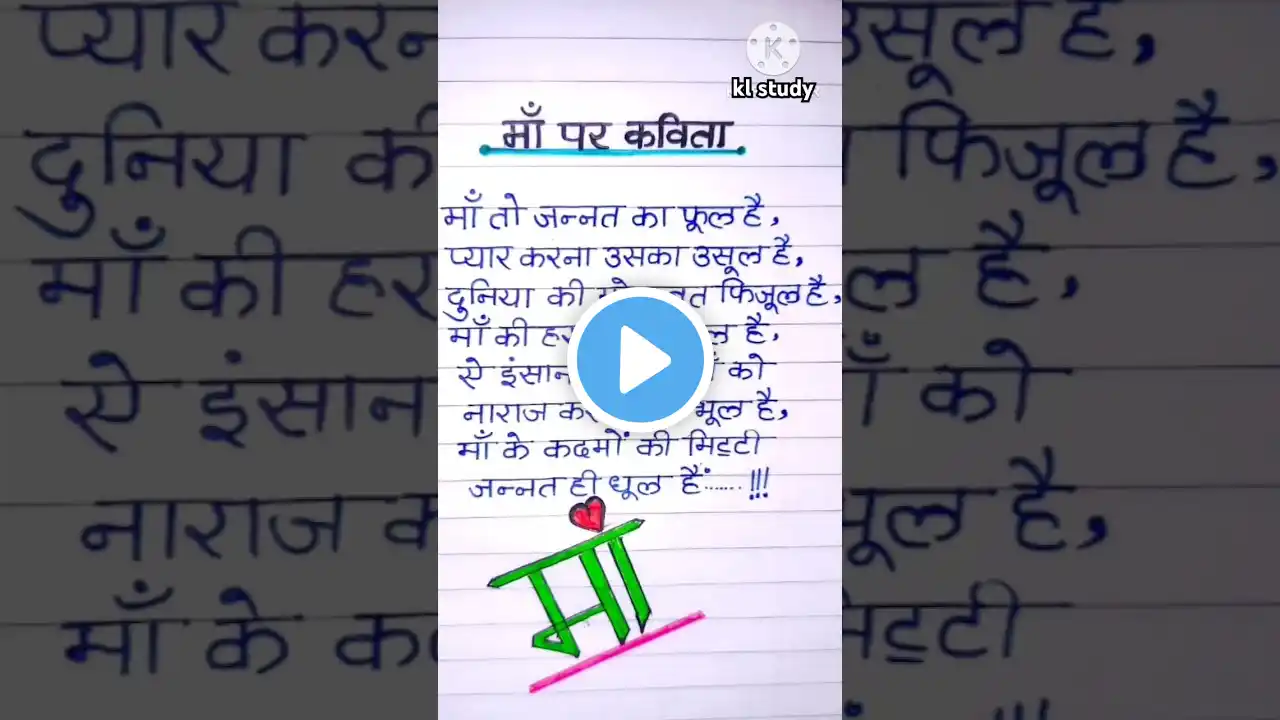 kl study
माँ पर कविता
माँ तो जन्नत का फूल है,
प्यार करना उसका उसूल है,
दुनिया की फिजूल है,
माँ की है,
ऐ इंसान को
नाराज भूल है,
माँ के कदमों की मिट्टी
जन्नत ही धूल हैं...... !!!
माँ